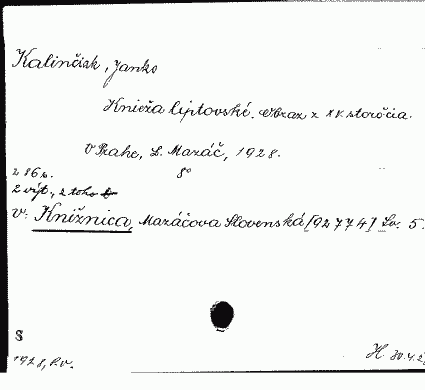 Kalinčiak, Janko
Knieža liptovské. Obraz z XV. storočia.
V Prahe, L. Mazáč, 1928.
286 s. 8°
2 výt., z toho
v: Knižnica, Mazáčova Slovenská [92774] Sv. 5
S
1928, P.v.
H 30.4.2